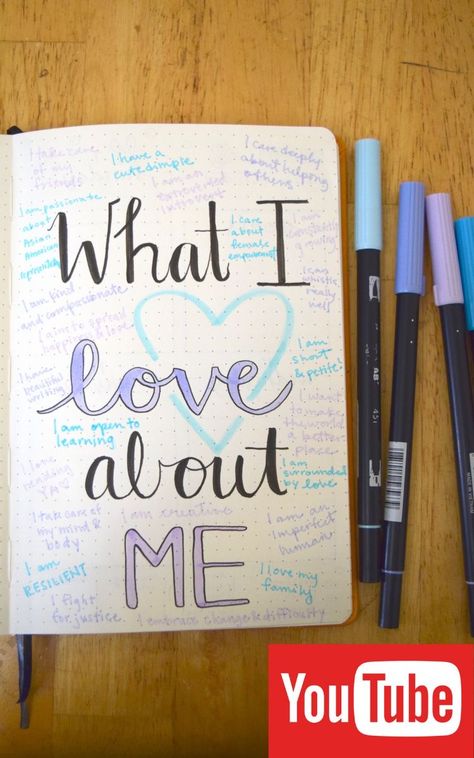 I take care
of my
friends
I have a
cute dimple
I am an
extroverted
introvert
I care deeply
about helping
others
I am passionate
about
Asian
American
I care
about
female
empowerment
I am
constantly
growing
What I
I am kind
and compassionate
I can
whistle
really
well
I aim to spread
happiness & love
I have
beautiful
writing
love
I am
short
& petite!
I am open to
learning
I want
to make
the world
a better
place
about
I love
reading
YA
I am
surrounded
by love
I take care of
my mind &
body
I am creative
I am an
imperfect
human
ME
I am
RESILIENT
I love my
family
I fight
for justice
I embrace change & difficulty
ABT
451
YouTube